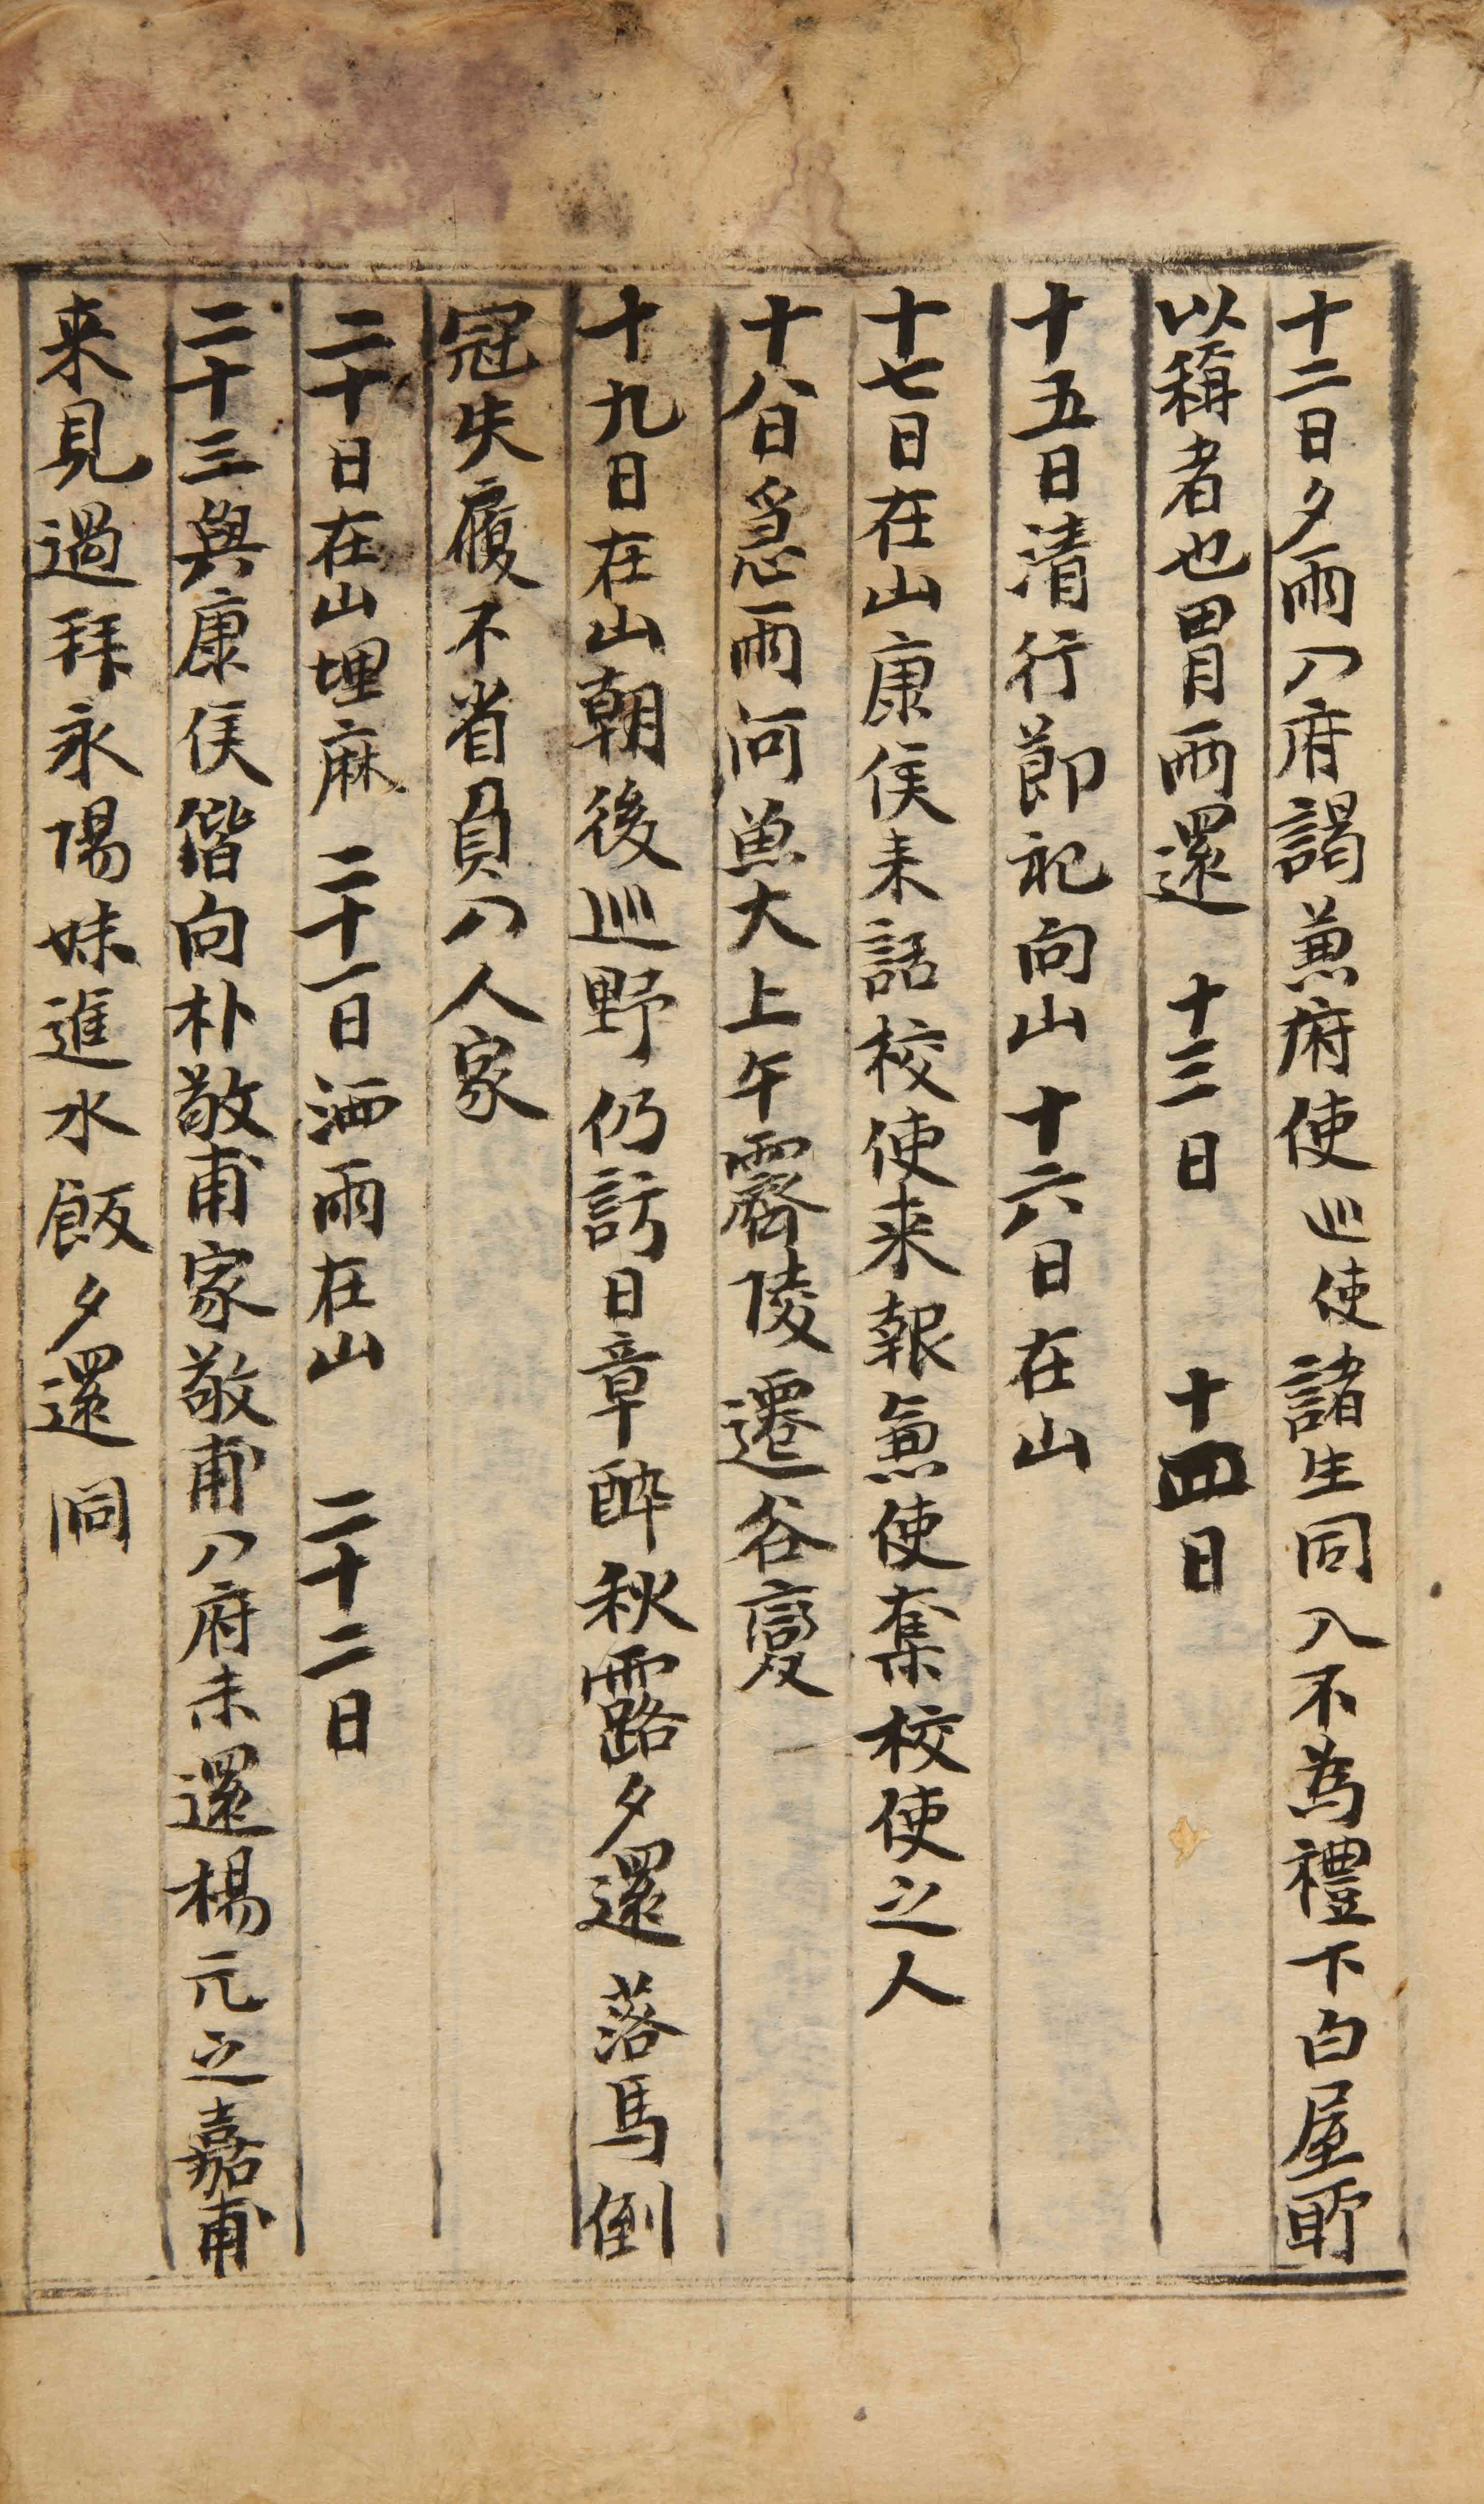 十二日夕雨入府謁兼府使巡使諸生同入不為禮下白屋所
以稱者也冒雨還 十三日 十四日
十五日清行節祀向山十六日在山
十七日在山康侯来話校使来報兼使奪校使之人
十八日急雨河魚大上午霽陵遷谷變
十九日在山朝後巡野仍訪日章酔秋露夕還落馬倒
冠失履不省負入人家
二十日在山埋麻 二十一日洒雨在山 二十二日
二十三與康侯偕向朴敬甫家敬甫入府未還楊元之嘉甫
来見過拜永陽妹進水飯夕還洞